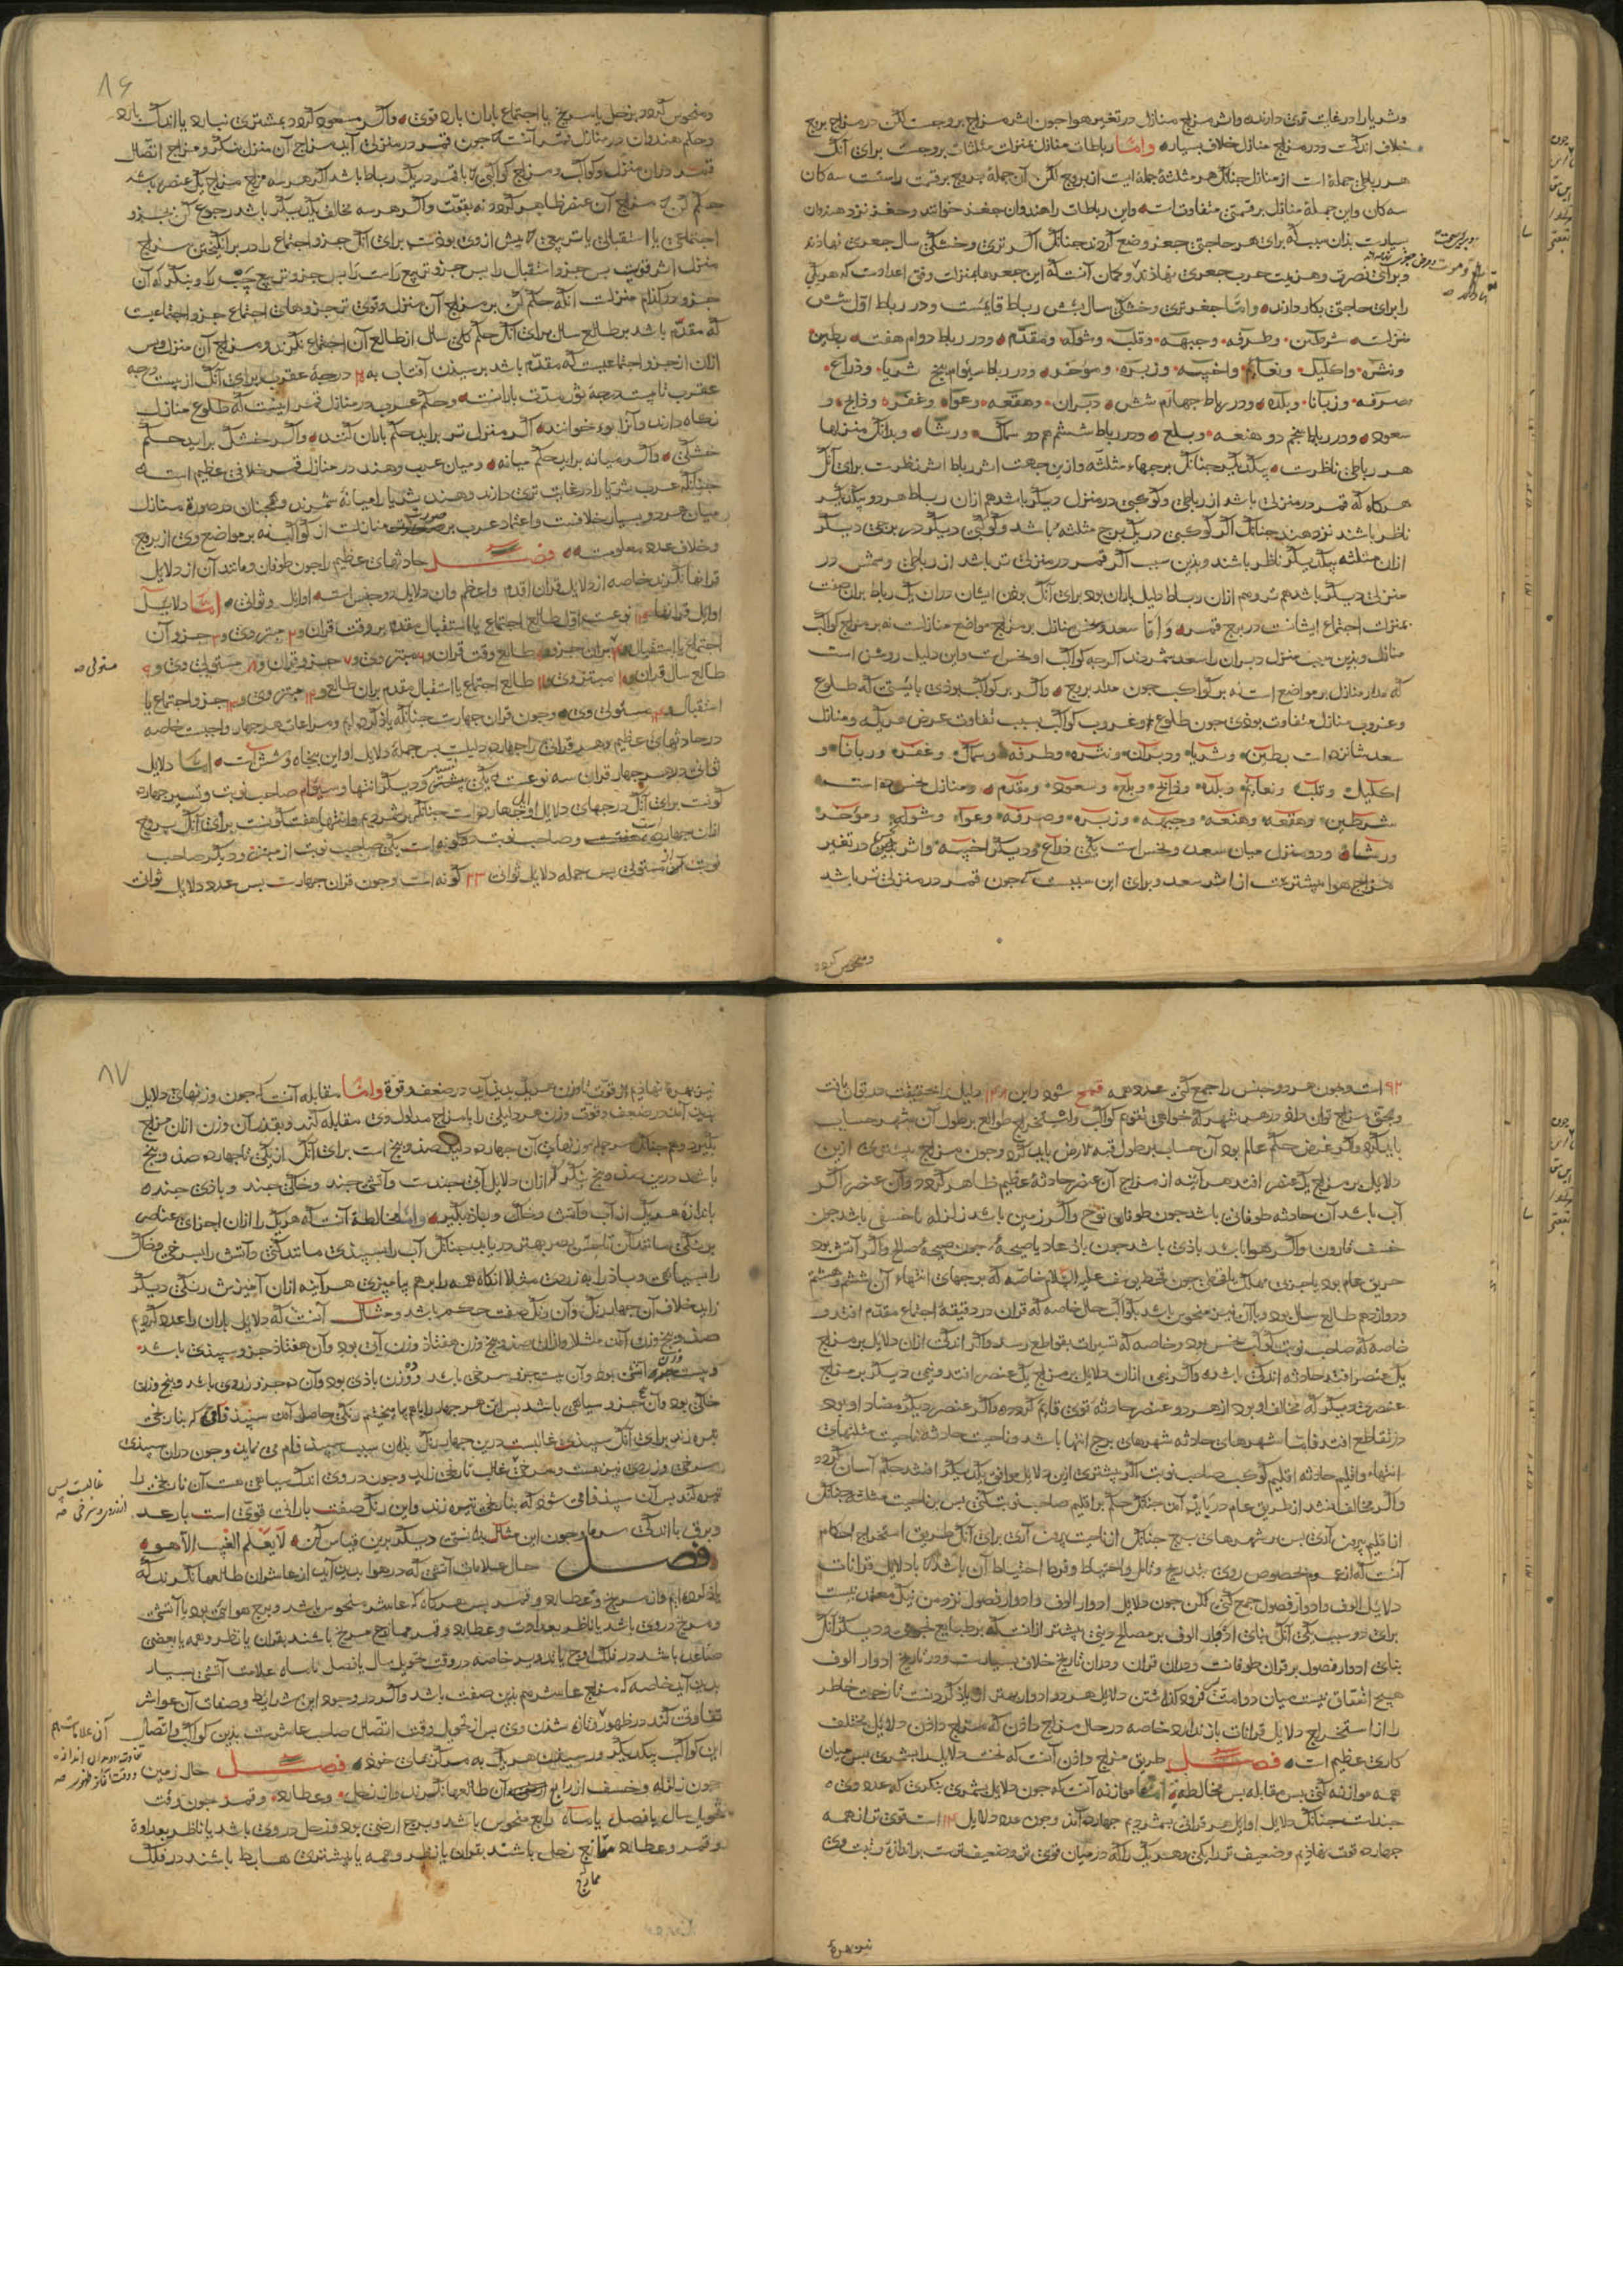 وثریا را در غایت تری دارند واثر مزاج منازل در تغیر هوا جون اثر مزاج بروجست لکن در مزاج بروج
خلاف اندکست ودر مزاج منازل خلاف بسیاره واما رباطات منازل بمنزلت مثلثات بروجست برای آنک
هر رباطی جمله است از منازل جنانک هر مثلثه جمله ایست از بروج لکن آن جمله بروج برقسمت راستست سه کان
سه کان واین جمله منازل برقسمتی متفاوت است واین رباطات را هندوان جغذ خوانند وجغذ نزد هندوان
بسیارست بذان سبب که برای هر حاجتی جغذ وضع کردند جنانک اگر تری وخشکی سال جغذی نهاذند
را برای حاجتی بکار دارند واما جغذ تری وخشکی سال بشش رباط قایمست ودر رباط اول شش
منزلست شرطین وطرفه وجبهه وقلب وشوله ومقدم ودر رباط دوام هفت بطین
ونثره واکلیل ونعایم واخبیه وزبره وموخر ودر رباط سیوام پنج ثریا وذراع
صرفه وزبانا وبلده ودر رباط جهارم شش دبران وهقعه وعوا وغفره وذابح و
سعود ودر رباط پنجم دو هنعه وبلع ودر رباط ششم هم دو سماک ورشا وبدانک منزلها
هر رباطی ناظرست بیکدیگر جنانک برجهاء مثلثه وازین جهت اثر رباط اثر نظرست برای آنک
هرکاه که قمر در منزلی باشد از رباطی وکوکبی در منزل دیگر باشد هم ازان رباط هر دو بیکدیگر
ناظر باشند نزد هند جنانک اگر کوکبی در یک برج مثلثه باشد وکوکبی دیگر در برجی دیگر
ازان مثلثه بیکدیگر ناظر باشند وبذین سبب اگر قمر در منزلی تر باشد از رباطی وشمس در
منزلی دیگر باشد هم تر وهم ازان رباط دلیل باران بود برای آنک بوذن ایشان دران یک رباط بران صفت
بمنزلت اجتماع ایشانست در برج قمر واما سعد ونحس منازل بر مزاج مواضع منازلست نه بر مزاج کواکب
منازل وبذین سبب منزل دبران را سعد شمردند اگرجه کواکب او نحس است واین دلیل روشن است
که مدار منازل بر مواضع است نه بر کواکب جون مدار بروج واگر بر کواکب بوذی بایستی که طلوع
وغروب منازل متفاوت بوذی جون طلوع وغروب کواکب بسبب تفاوت عرض هریک ومنازل
سعد شانزده است بطین وثریا ودبران ونثره وطرفه وسماک وغفره وزبانا و
اکلیل وقلب ونعایم وبلده وذابح وبلع وسعود ومقدم ومنازل نحس است
شرطین وهقعه وهنعه وجبهه وزبره وصرفه وعوا وشوله وموخر
ورشا ودو منزل میان سعد ونحس است یکی ذراع ودیگر اخبیه واثر نحس در تغیر
مزاج هوا بیشترست از اثر سعد وبرای این سببست جون قمر در منزلی تر باشد
ومنحوس کردد
۸۶
ومنحوس کردد بزحل یا مریخ یا اجتماع باران بارد قوی واگر مسعود کردد بمشتری نبارد یا اندک بارد
وحکم هندوان در منازل قمر آنست که جون قمر در منزلی آید مزاج آن منزل بنکرد ومزاج اتصال
قمر دران منزل وکواکب ومزاج کواکبی که با قمر در یک رباط باشد اگر هر سه مزاج یک عنصر باشد
حکم کن مزاج آن عنصر ظاهر کردد نه بقوت واگر هر سه مخالف یک دیگر باشد رجوع کن بجزو
اجتماعی یا استقبالی یا تربیعی که پیش ازوی بوذست برای آنک جزو اجتماع را در برانکیختن مزاج
منزل اثر قویست پس جزو استقبال را پس جزو تربیع راست را پس جزو تربیع چپ را وبنکر که آن
جزو در کدام منزلست آنکه حکم کن بر مزاج آن منزل وقوی تر جزوهای اجتماع جزو اجتماعیست
که مقدم باشد بر طالع سال برای آنک حکم کلی سال از طالع آن اجتماع نکرند ومزاج آن منزل وپس
ازان از جزو اجتماعیست که مقدم باشد بر رسیدن آفتاب به درجه عقرب برای آنک از بیست درجه
عقرب تا بیست درجه ثور مدت بارانست وحکم عرب در منازل قمر اینست که طلوع منازل
نکاه دارند وآنرا نوء خوانند اگر منزل تر برآید حکم باران کنند واگر خشک برآید حکم
خشکی واگر میانه برآید حکم میانه ومیان عرب وهند در منازل قمر خلافی عظیم است
جنانکه عرب ثریا را در غایت تری دارند وهند ثریا را میانه شمرند وهمجنان در صورة منازل
میان هر دو بسیار خلافست واعتماد عرب بر صورت منازلست از کواکب نه بر مواضع وی از بروج
وخلاف عدد معلومست فصل حادثهای عظیم را جون طوفان ومانند آن از دلایل
قرانها نکرند خاصه از دلایل قران اقدم واعظم وان دلایل دو جنس است اوایل وثوانی اما دلایل
اوایل قرانها ۱۴ نوعست اول طالع اجتماع یا استقبال مقدم بر وقت قران و۲ مبتزوی و۳ جزو آن
اجتماع یا استقبال و۴ مبتز ان جزو و۵ طالع وقت قران و۶ مبتزوی و۷ جزو قران و۸ مستولی وی و۹
طالع سال قران و۱۰ مبتزوی و۱۱ طالع اجتماع یا استقبال مقدم بران طالع و۱۲ مبتزوی و۱۳ جزو اجتماع یا
استقبال و۱۴ مستولی وی وجون قران جهارست جنانکه یاذ کرده ایم ومراعات هر جهار واجبست خاصه
در حادثهای عظیم وهر قرانی را جهارده دلیلست پس جمله دلایل او این پنجاه وشش است اما دلایل
ثوانی دلایل هر جهار قران سه نوعست یکی تسییر ودیگر انتها وسیوام صاحب نوبت وتسییر جهارده
نوبت آن مستولی پس جمله دلایل ثوانی ۲۳ کونه است وجون قران جهارست پس عدد دلایل ثوانی
مستولی صه
۹۲ است وجون هر دو جنس را جمع کنی عدد همه قمح شود واین ۱۴۸ دلیل را بحقیقت در توان یافت
وبحق مزاج توان داد در هر شهر که خواهی تقویم کواکب واستخراج طوالع بر طول آن شهر حساب
باید کرد واگر غرض حکم عالم بود آن حساب بر طول قبة الارض باید کرد وجون مزاج بیشتری ازین
دلایل بر مزاج یک عنصر افتد هر آینه از مزاج آن عنصر حادثه عظیم ظاهر کردد وآن عنصر اگر
آب باشد آن حادثه طوفانی باشد جون طوفان نوح واگر زمین باشد زلزله یا خسفی باشد جون
خسف قارون واگر هوا باشد باذی باشد جون باذ عاد یا صیحه جون صیحه صالح واگر آتش بود
حریق عام بود یا حربی مهلک یا قحطی جون قحط یوسف علیه السلام خاصه که برجهای انتهاء آن ششم وهشتم
ودوازدهم طالع سال بود وبا آن نیز منحوس باشد بکواکب حال خاصه که قران در دقیقه اجتماع مقدم افتد و
خاصه که صاحب نوبت کوکب نحس بود وخاصه که تسییرات بقواطع رسد واگر اندکی ازان دلایل بر مزاج
یک عنصر افتد حادثه اندکی باشد واگر نیمی ازان دلایل بر مزاج یک عنصر افتد ونیمی دیگر بر مزاج
عنصری دیگر که مخالف او بود از هر دو عنصر حادثه قوی قایم کردد واگر عنصر دیگر مضاد او بود
در تقاطع افتد فاما شهرهای حادثه شهرهای برج انتها باشد وناحیت حادثه ناحیت مثلثهای
انتهاء واقلیم حادثه اقلیم کوکب صاحب نوبت اگر بیشتری ازین دلایل موافق یکدیگر افتد حکم آسان کردد
واگر مخالف افتد از طریق عام در باید آمدن جنانک حکم بر اقلیم صاحب نوبت کنی پس بر ناحیت مثلثه جنانک
از اقلیم بیرون آری پس بر شهرهای برج جنانک از ناحیت بیرون آری برای آنک طریق استخراج احکام
آنست که از عموم بخصوص روی بتدریج وتامل واحتیاط وفرط احتیاط آن باشد که با دلایل قرانات
دلایل الوف وادوار فصول جمع کنی لکن جون دلایل ادوار الوف وادوار فصول نزد من نیک معتمد نیست
برای دو سبب یکی آنک بنای ادوار الوف بر مصالح دینی بیشتر ازانست که بر طبایع نجومی ودیگر آنک
بنای ادوار فصول بر قران طوفانست ودران قران ودران تاریخ خلاف بسیارست ودر تاریخ ادوار الوف
هیچ اتفاق نیست میان دو امت کرد کذاشتن دلایل هر دو ادوار بهتر از یاذ کردنست تا زحمت خاطر
را از استخراج دلایل قرانات باز ندارد خاصه در حال مزاج داذن که مزاج داذن دلایل مختلف
کاری عظیم است فصل طریق مزاج داذن آنست که نخست دلایل را بشمری پس میان
همه موازنه کنی پس مقابله پس مخالطه اما موازنه آنست که جون دلایل بشمری بنکری که عدد وی
جندست جنانک دلایل اوایل هر قرانی بشمردیم جهارده آمد وجون عدد دلایل ۱۴ است قوی تر از همه
جهارده قوت نهاذیم وضعیف تر را یکی وهر یک را که در میان قوی تر وضعیف ترست بر اندازه رتبت وی
نیز بهره
۸۷
نیز بهره نهاذیم از قوت تا وزن هر یک پدید آید در ضعف وقوة واما مقابله آنست که جون وزنهای دلایل
پدید آمد در ضعف وقوت وزن هر دلیلی را با مزاج مدلول وی مقابله کند وبقدر آن وزن ازان مزاج
بکیرد وهم جنانک سر جمله وزنهای آن جهارده دلیل صد وپنج است برای آنک از یکی تا جهارده صد وپنج
باشد درین صد وپنج بنکر که ازان دلایل آبی جندست وآتشی جند وخاکی جند وباذی جند
باندازه هر یک از آب وآتش وخاک وباذ بکیرد واما مخالطه آنست که هر یک را ازان اجزای عناصر
برنکی مانند آن تا حس بصر بهتر دریابد جنانک آب را بسپیذی مانند کنی وآتش را بسرخی وخاک
را بسیاهی وباذ را بزردی مثلا آنکاه همه را برهم بیامیزی هر آینه ازان آمیزش رنکی دیگر
زاید خلاف آن جهار رنک وآن رنک صفت حکم باشد ومثال آنست که دلایل باران را عدد کردیم
صد وپنج وزن آمد مثلا وازان صد وپنج وزن هفتاذ وزن آبی بود وآن هفتاذ جزو سپیذی باشد
وبیست وزن آتشی بود وآن بیست جزو سرخی باشد وده وزن باذی بود وآن ده جزو زردی باشد وپنج وزن
خاکی بود وآن پنج جزو سیاهی باشد پس این هر جهار را باهم بیامیختیم رنکی حاصل آمد سپیذ فام که بتاریکی
تیره زند برای آنک سپیذی غالبست درین جهار رنک بذان سبب سپیذ فام می نماید وجون دران سپیذی
سرخی وزردی نیز هست وسرخی غالب تاریکی زاید وجون دروی اندک سیاهی هست آن تاریکی را
تیره کند پس آن سپیذ فامی شود که بتاریکی تیره زند واین رنک صفت بارانی قوی است با رعد
وبرق با اندکی سرما وجون این مثال بدانستی دیگر برین قیاس کن لا یعلم الغیب الا هو
فصل حال علامات آتشی که در هوا پدید آید از عاشران طالعها نکرند که
یاذ کرده ایم واز مریخ وعطارد وقمر پس هرکاه که عاشر منحوس باشد وبرج هوایی بود یا آتشی
ومریخ دروی باشد یا ناظر بعداوت وعطارد وقمر ممازج مریخ باشند بقران یا نظر وهمه یا بعضی
صاعد باشد در فلک اوج یا تدویر خاصه در وقت تحویل سال یا فصل یا ماه علامت آتشی بسیار
پدید آید خاصه که مزاج عاشر هم بذین صفت باشد واگر در وجود این شرایط وصفات آن عواشر
تفاوت کند در ظهور وتازه شدن وی پس از تحویل وقت اتصال صاحب عاشرست بذین کواکب واتصال
این کواکب بیکدیگر ورسیدن هر یک به مرکزهای خود فصل حال زمین
جون زلزله وخسف از رابع آن طالعها نکرند واز زحل وعطارد وقمر جون وقت
تحویل سال یا فصل یا ماه رابع منحوس باشد وبرج ارضی بود وزحل دروی باشد یا ناظر بعداوة
وقمر وعطارد ممازج زحل باشند بقران یا نظر وهمه یا بیشتری هابط باشند در فلک
غالبست پس
ممازج